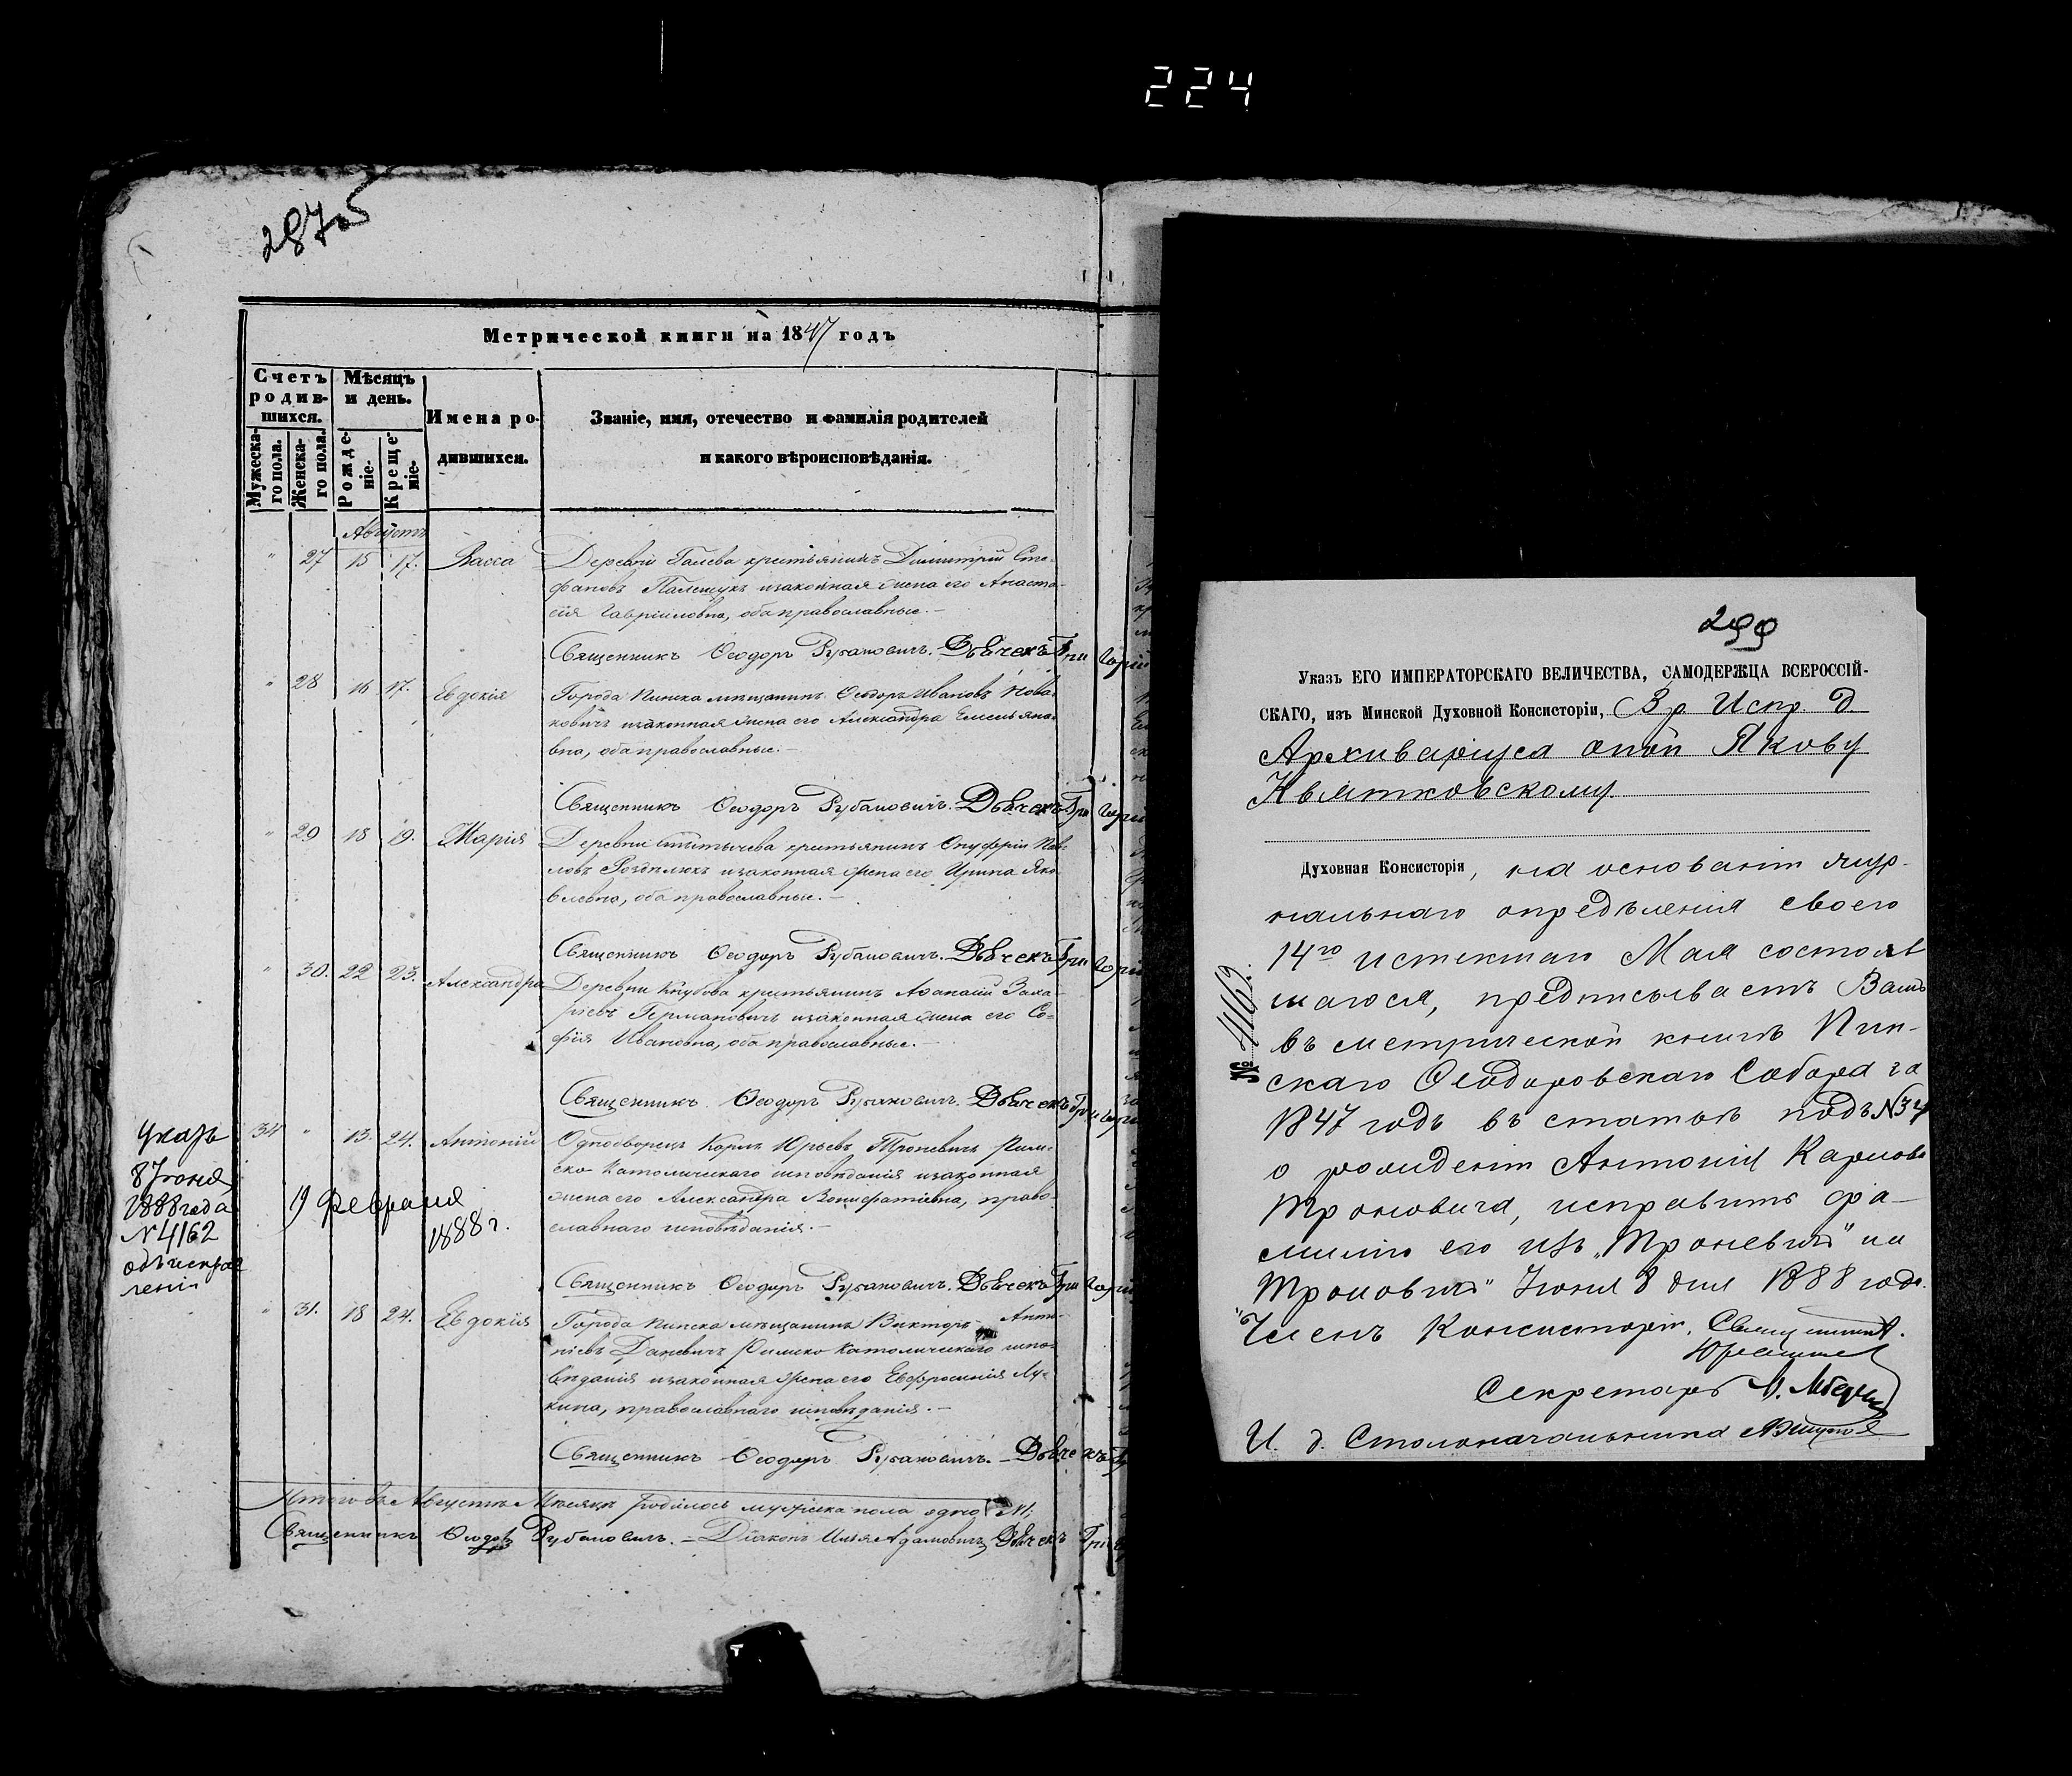 224
287об
Метрической книги на 1847 годъ
Счетъ родив-
шихся.
Мѣсяцъ
и день.
Имена ро-
дившихся.
Званіе, имя, отечество и фамилія родителей
и какого вѣроисповѣданія.
Мужеска-
го пола.
Женска-
го пола.
Рожде-
ніе.
Креще-
ніе.
Августъ
" 27 15 17. Васса Деревни Галева крестьянинъ Димитрій Сте-
фановъ Палещукъ и законная жена его Анаста-
сія Гавриловна, оба православные.–
Священникъ Ѳеодоръ Рубановичъ. Дьячекъ Григорій
" 28 16 17. Евдокія Города Пинска мѣщанинъ Ѳеодоръ Ивановъ Нова-
ковичъ и законная жена его Александра Емельяно-
вна, оба православные.–
Священникъ Ѳеодоръ Рубановичъ. Дьячекъ Григорій
" 29 18 19. Марія Деревни крестьянинъ Онуфрій Пав-
ловъ и законная жена его Ирина Яко-
влевна, оба православные.–
Священникъ Ѳеодоръ Рубановичъ. Дьячекъ Григорій
" 30. 22 23. Александра Деревни крестьянинъ Аѳанасій Заха-
ріевъ Германовичъ и законная жена его Со-
фія Ивановна, оба православные.–
Священникъ Ѳеодоръ Рубановичъ. Дьячекъ Григорій
34 " 13. 24. Антоній Однодворецъ Карлъ Юрьевъ Троневичъ Рим-
ско Католическаго исповѣданія и законная
жена его Александра Вонифатіевна, право-
славнаго исповѣданія.–
Указъ
8 Іюня
1888 года
№ 4162
объ исправ
леніи
19 Февраля
1888 г.
Священникъ Ѳеодоръ Рубановичъ. Дьячекъ Григорій
" 31. 18 24. Евдокія Города Пинска мѣщанинъ Викторъ Анто-
ніевъ Даневичъ Римско Католическаго испо-
вѣданія и законная жена его Евфросинія Лу-
кина, православнаго исповѣданія.–
Священникъ Ѳеодоръ Рубановичъ.– Дьячекъ
Итого въ Августѣ Мѣсяцѣ родилось мужеска пола одно
Священникъ Ѳеодоръ Рубановичъ.– Діаконъ Илья Адамовичъ Дьячекъ
299
Указъ ЕГО ИМПЕРАТОРСКАГО ВЕЛИЧЕСТВА, САМОДЕРЖЦА ВСЕРОССІЙ-
СКАГО, изъ Минской Духовной Консисторіи, Вр. Испр. д.
Архиваріуса оной Якову
Квятковскому.
Духовная Консисторія, на основаніи жур-
нальнаго опредѣленія своего
14го истекшаго Мая состояв
шагося, предписываетъ Вамъ
въ метрической книгѣ Пин-
скаго Ѳеодоровскаго Собора за
1847 годъ въ статьѣ подъ №34
о рожденіи Антонія Карлова
Троновича, исправить фа-
милію его изъ „Троневичъ" на
„Троновичъ" Іюня 8 дня 1888 года.
Членъ Консисторіи, Священникъ
Секретарь
И. д. Столоначальника
№ 4162.